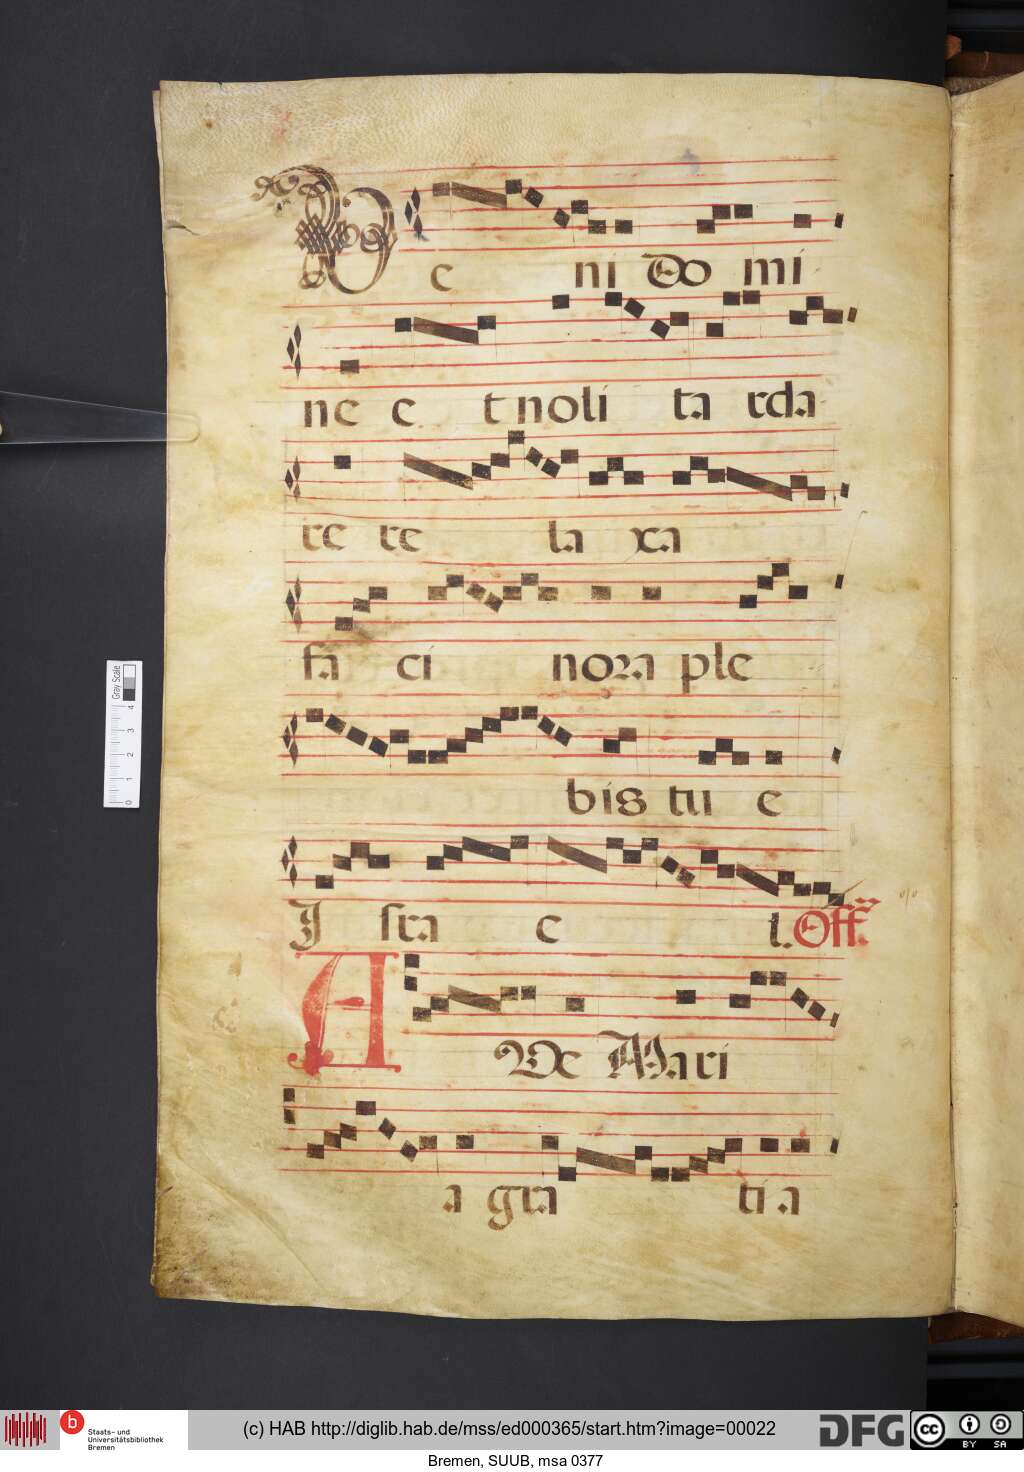 Ve ni Do mi
ne e t noli ta rda
re re la xa
fa ci nora ple
bis tu e
J sra e l. Off.
A Ve Mari
a gra ti a
Gray Scale
0 1 2 3 4
b Staats- und Universitätsbibliothek Bremen
(c) HAB http://diglib.hab.de/mss/ed000365/start.htm?image=00022
DFG
cc BY SA
Bremen, SUUB, msa 0377